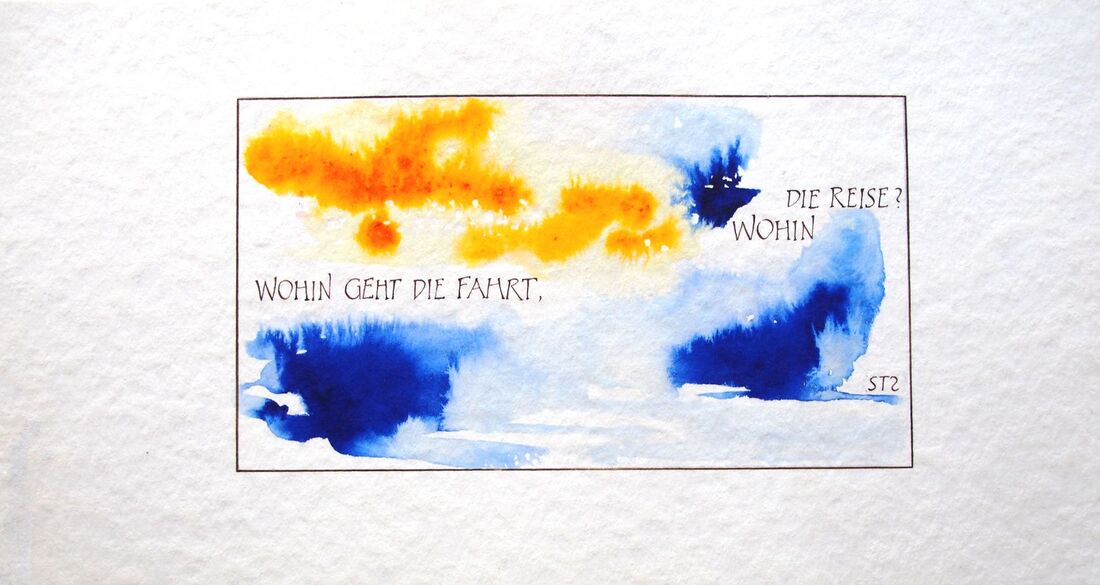 WOHIN GEHT DIE FAHRT,
WOHIN
DIE REISE?
STZ